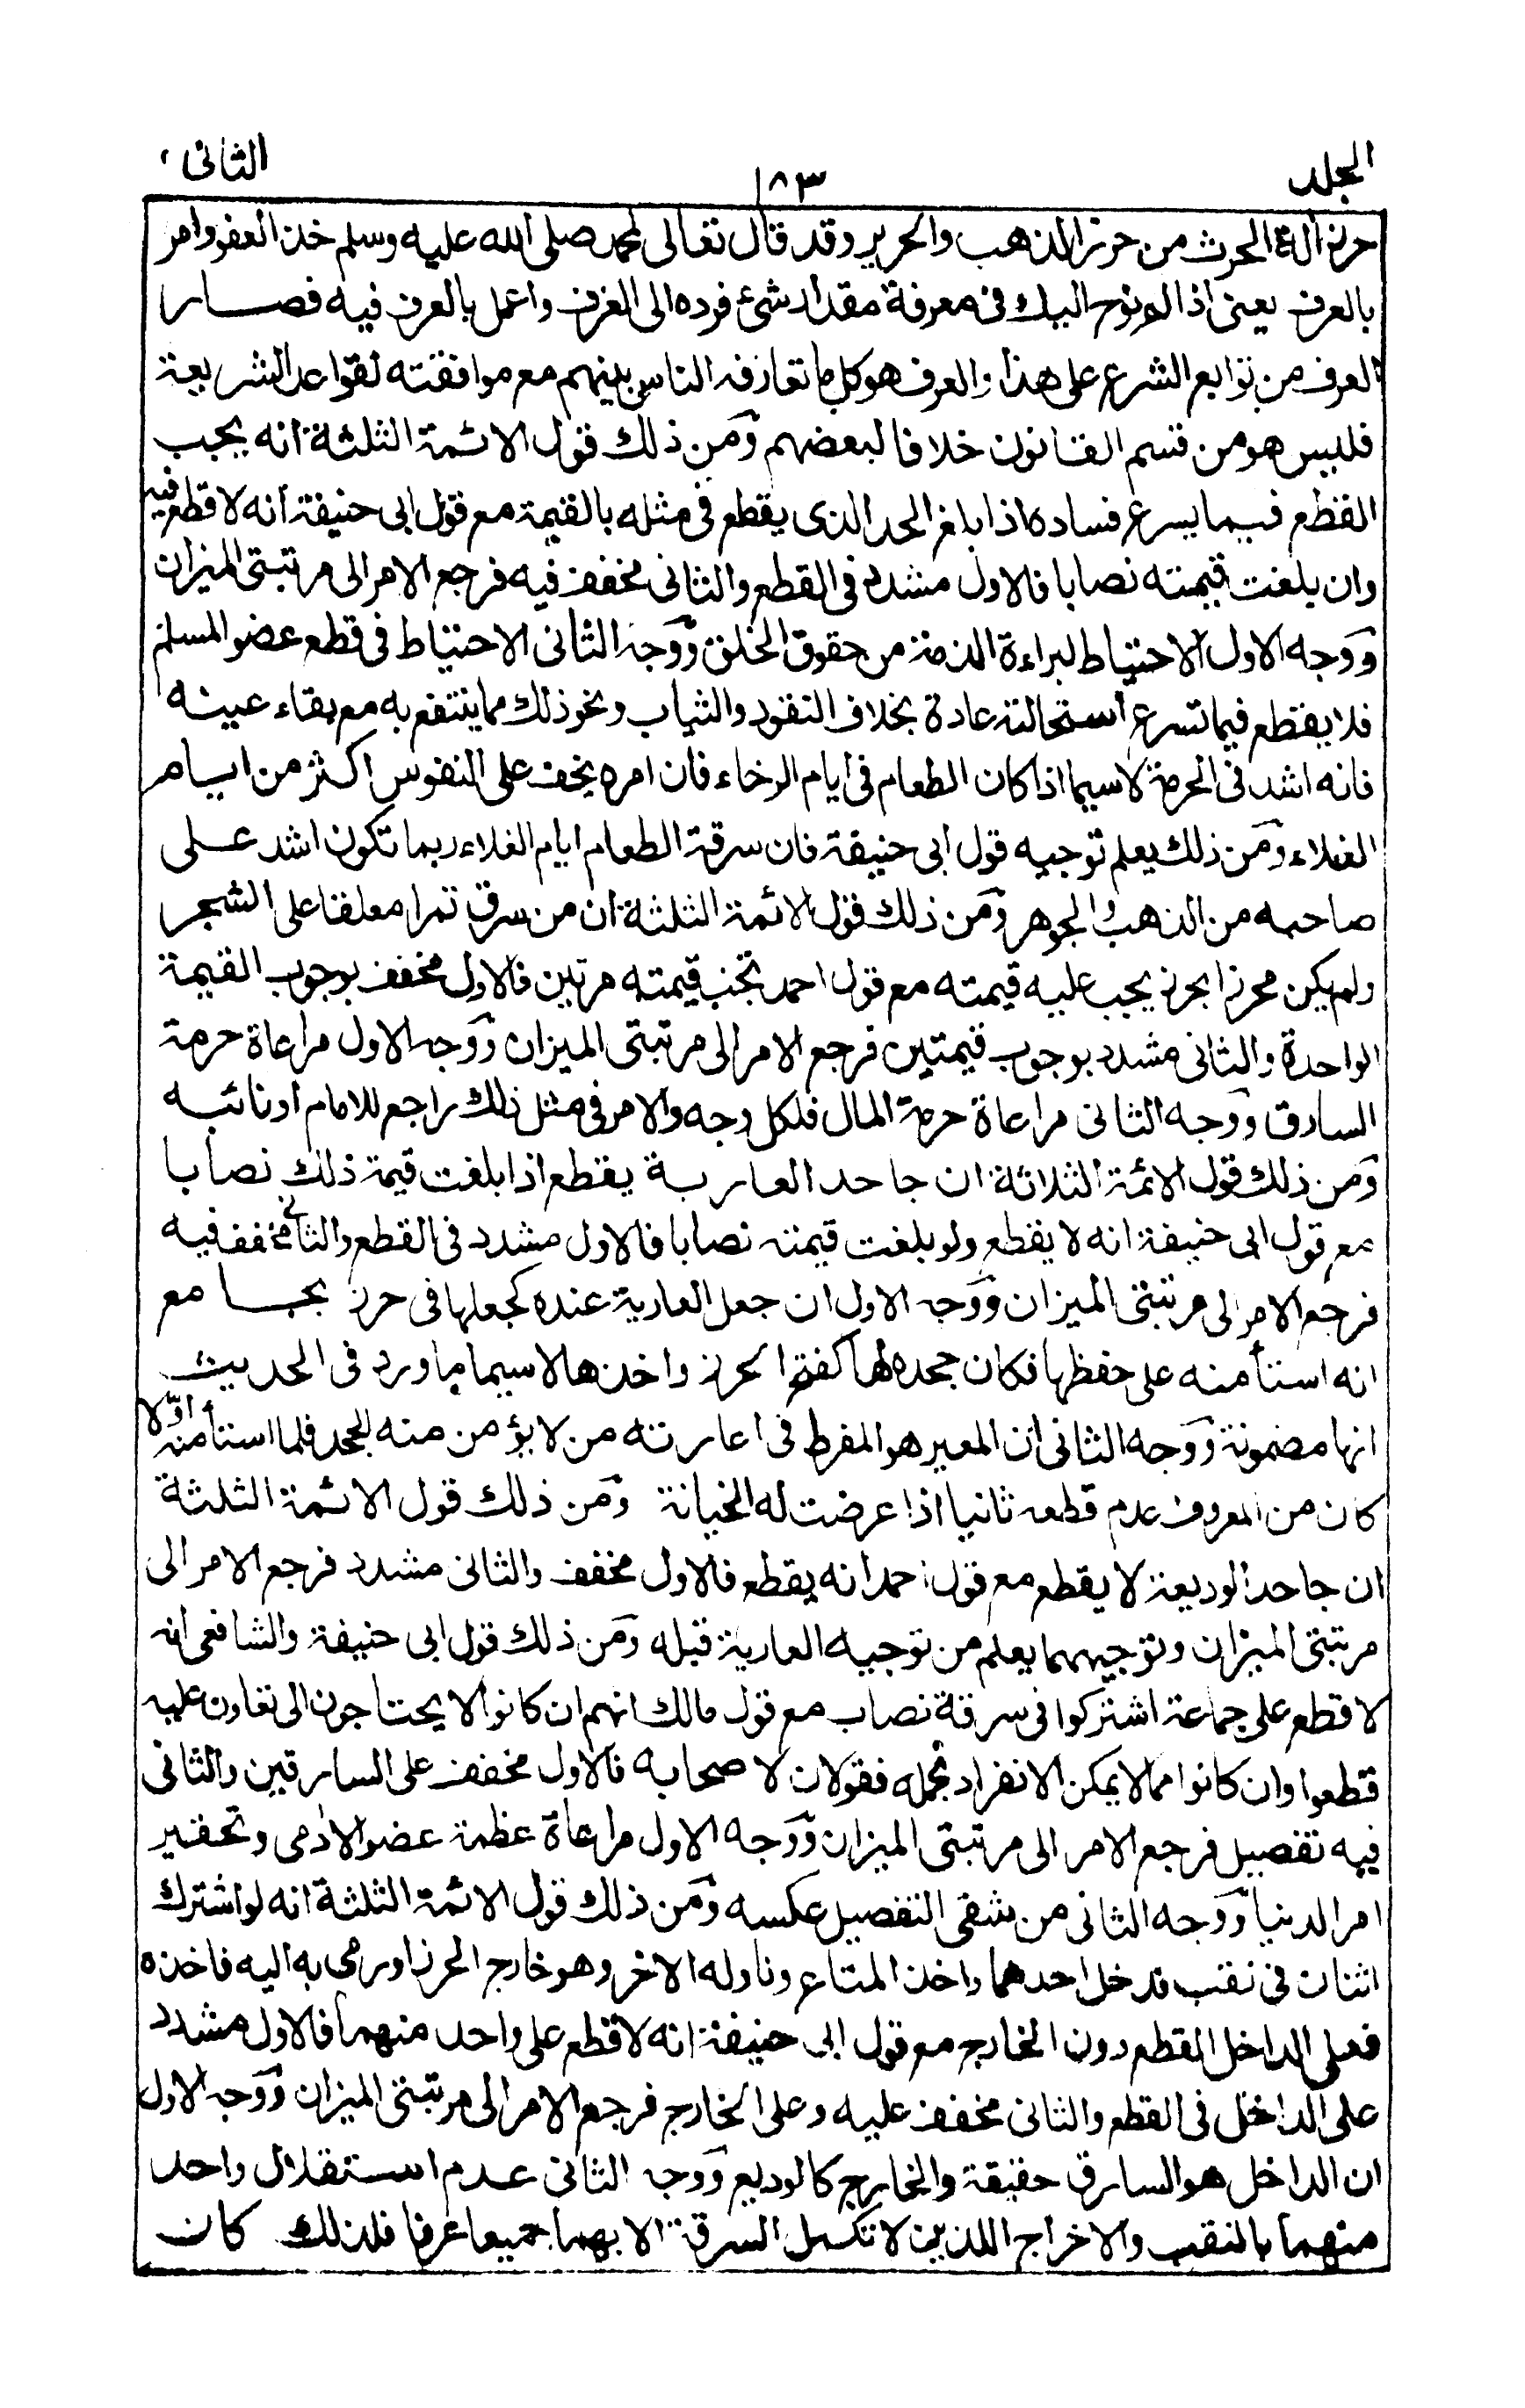 الجلد
١٨٣
الثانى
حرز آلة الحرث من حرز الذهب والحرير وقد قال تعالى لمحمد صلى الله عليه وسلم خذ العفو وامر
بالعرف يعنى اذا لم نوح اليك فى معرفة مقدار شئ فرده الى العرف واعمل بالعرف فيه فصار
العرف من توابع الشرع على هذا والعرف هو كل ما تعارفه الناس بينهم مع موافقته لقواعد الشريعة
فليس هو من قسم القانون خلافا لبعضهم ومن ذلك قول الائمة الثلثة انه يجب
القطع فيما يسرع فساده اذا بلغ الحد الذى يقطع فى مثله بالقيمة مع قول ابى حنيفة انه لا قطع فيه
وان بلغت قيمته نصابا فالاول مشدد فى القطع والثانى مخفف فيه فرجع الامر الى مرتبتى الميزان
ووجه الاول الاحتياط لبراءة الذمة من حقوق الخلق ووجه الثانى الاحتياط فى قطع عضو المسلم
فلا يقطع فيما تسرع استحالته عادة بخلاف النقود والثياب ونحو ذلك مما ينتفع به مع بقاء عينه
فانه اشد فى الحرمة لا سيما اذا كان الطعام فى ايام الرخاء فان امره يخف على النفوس اكثر من ايام
الغلاء ومن ذلك يعلم توجيه قول ابى حنيفة فان سرقة الطعام ايام الغلاء ربما تكون اشد على
صاحبه من الذهب والجوهر ومن ذلك قول الائمة الثلثة ان من سرق تمرا معلقا على الشجر
ولم يكن محرزا بحرز يجب عليه قيمته مع قول احمد تجب قيمته مرتين فالاول مخفف بوجوب القيمة
الواحدة والثانى مشدد بوجوب قيمتين فرجع الامر الى مرتبتى الميزان ووجه الاول مراعاة حرمة
السارق ووجه الثانى مراعاة حرمة المال فلكل وجه والامر فى مثل ذلك راجع للامام او نائبه
ومن ذلك قول الائمة الثلاثة ان جاحد العارية يقطع اذا بلغت قيمة ذلك نصابا
مع قول ابى حنيفة انه لا يقطع ولو بلغت قيمته نصابا فالاول مشدد فى القطع والثانى مخفف فيه
فرجع الامر الى مرتبتى الميزان ووجه الاول ان جعل العارية عنده كجعلها فى حرز بجامع
انه استأمنه على حفظها فكان جحده لها كفتح الحرز واخذها لا سيما ما ورد فى الحديث
انها مضمونة ووجه الثانى ان المعير هو المفرط فى اعارته من لا يؤمن منه الجحد فلما استأمنه اوّلا
كان من المعروف عدم قطعه ثانيا اذا عرضت له الخيانة ومن ذلك قول الائمة الثلثة
ان جاحد الوديعة لا يقطع مع قول احمد انه يقطع فالاول مخفف والثانى مشدد فرجع الامر الى
مرتبتى الميزان وتوجيههما يعلم من توجيه العارية قبله ومن ذلك قول ابى حنيفة والشافعى انه
لا قطع على جماعة اشتركوا فى سرقة نصاب مع قول مالك انهم ان كانوا لا يحتاجون الى تعاون عليه
قطعوا وان كانوا مما لا يمكن الانفراد بحمله فقولان لاصحابه فالاول مخفف على السارقين والثانى
فيه تفصيل فرجع الامر الى مرتبتى الميزان ووجه الاول مراعاة عظمة عضو الادمى وتحقير
امر الدنيا ووجه الثانى من شقى التفصيل عكسه ومن ذلك قول الائمة الثلثة انه لو اشترك
اثنان فى نقب فدخل احدهما واخذ المتاع وناوله الاخر وهو خارج الحرز او رمى به اليه فاخذه
فعلى الداخل القطع دون الخارج مع قول ابى حنيفة انه لا قطع على واحد منهما فالاول مشدد
على الداخل فى القطع والثانى مخفف عليه وعلى الخارج فرجع الامر الى مرتبتى الميزان ووجه الاول
ان الداخل هو السارق حقيقة والخارج كالوديع ووجه الثانى عدم استقلال واحد
منهما بالنقب والاخراج اللذين لا تكمل السرقة الا بهما جميعا عرفا فلذلك كان